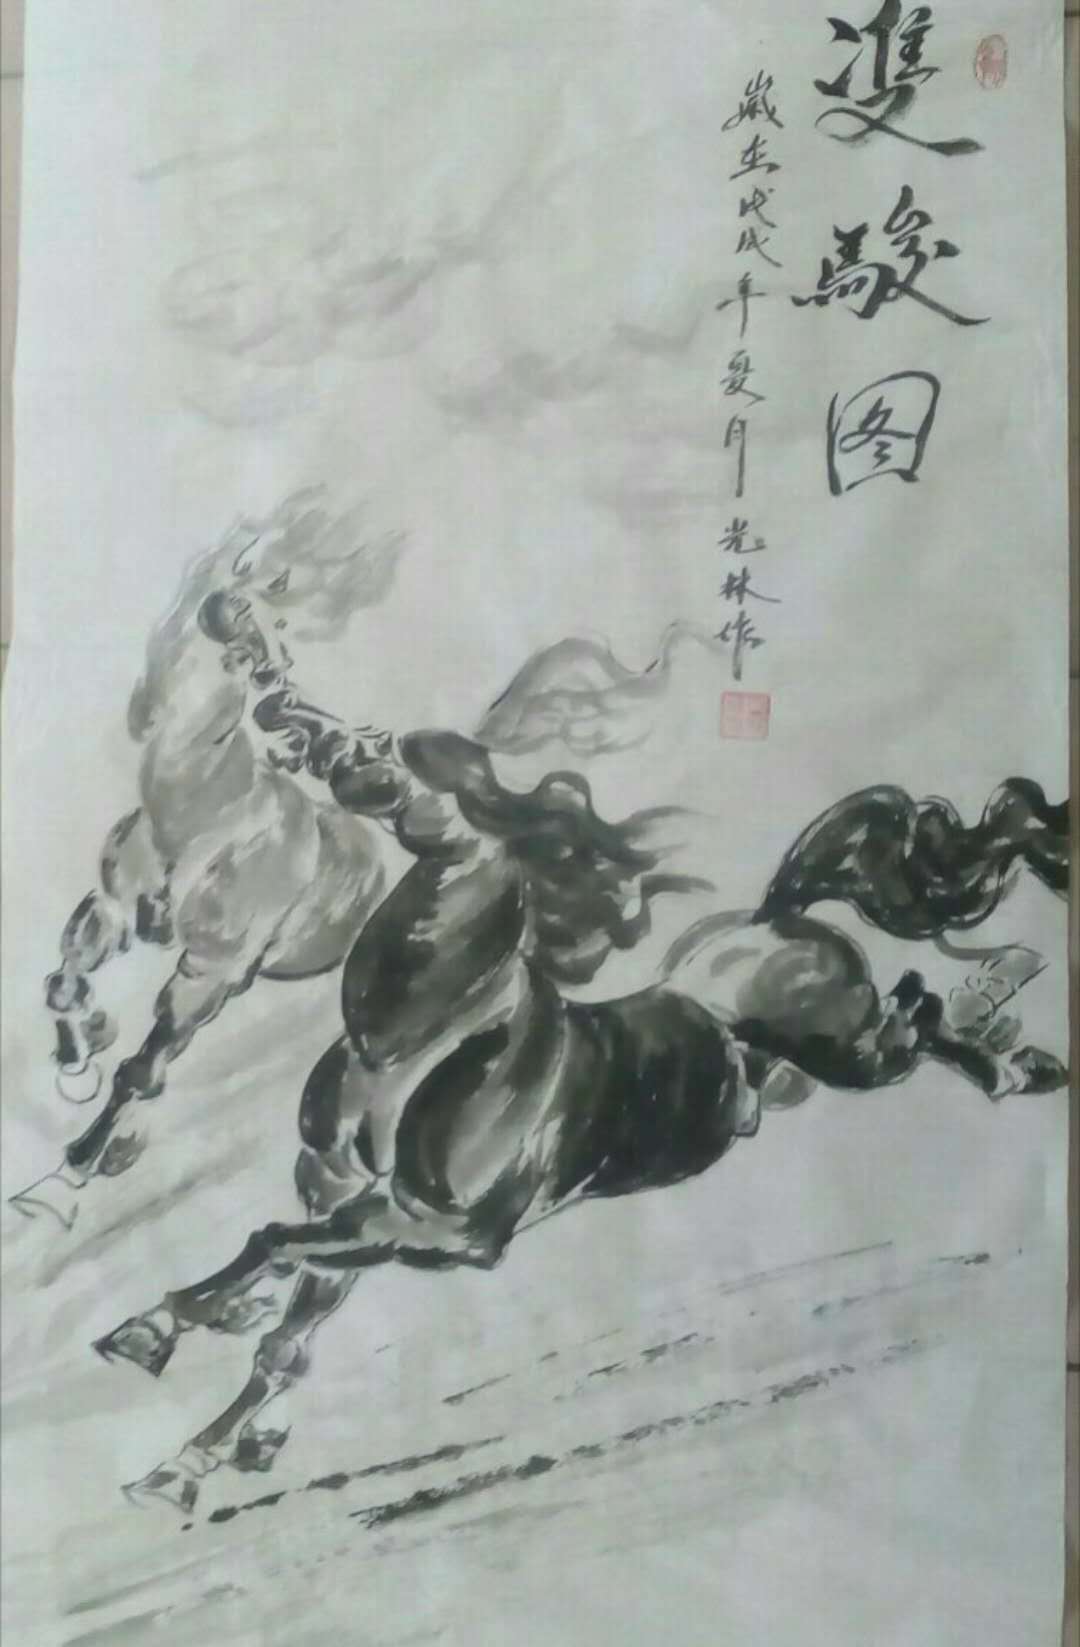 雙駿图
歲在戊戌年夏月光林作